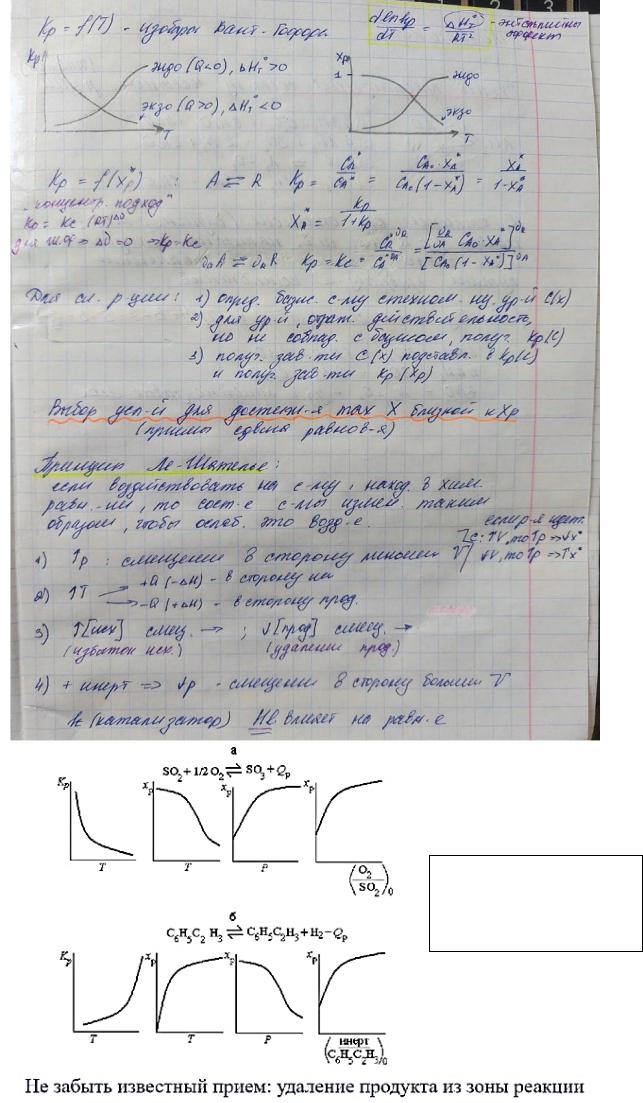 Kp = f(T) - изобара Вант-Гоффа
dlnKp/dT = ΔH_T°/RT² - энтальпийный эффект
Kp
эндо (Q<0), ΔH_T°>0
экзо (Q>0), ΔH_T°<0
T
Xp
1
эндо
экзо
T
Kp = f(Xp*) : A ⇌ R Kp = C_R*/C_A* = C_A0·X_A*/C_A0(1-X_A*) = X_A*/1-X_A*
"концентр. подход"
Kp = Kc (RT)^Δυ
=> Δυ=0 => Kp=Kc
X_A* = Kp/1+Kp
υ_A A ⇌ υ_R R Kp = Kc = C_R*^υR/C_A*^υA = [υ_R/υ_A C_A0·X_A*]^υR/[C_A0(1-X_A*)]^υA
Для сл. р-ции: 1) опред. базис. с-му стехиом. ур-й C(x)
2) для ур-й, отраж. действительность,
но не совпад. с базисом, получ. Kp(C)
3) получ. зав-ти C(x) подставл. в Kp(C)
и получ. зав-ти Kp(Xp)
Выбор усл-й для достижен-я max X близкой к Xp
(приемы сдвига равнов-я)
Принцип Ле-Шателье:
если воздействовать на с-му, наход. в хим.
равн.-ии, то сост-е с-мы измен. таким
образом, чтобы ослаб. это возд-е.
если р-я идет
с: ↑V, то ↑p => ↓x*
↓V, то ↑p => ↑x*
1) ↑p : смещение в сторону меньшего V
2) ↑T → +Q (-ΔH) - в сторону исх
→ -Q (+ΔH) - в сторону прод.
3) ↑[исх] смещ. → ; ↓[прод] смещ. →
(избыток исх.) (удаление прод.)
4) + инерт => ↓p - смещение в сторону больших V
k (катализатор) НЕ влияет на равн-е
а
SO2 + 1/2 O2 ⇌ SO3 + Qp
Kp
T
xp
T
xp
P
xp
(O2/SO2)0
б
C6H5C2 H3 ⇌ C6H5C2H3 + H2 – Qp
Kp
T
xp
T
xp
P
xp
(инерт/C6H5C2H3)0
Не забыть известный прием: удаление продукта из зоны реакции